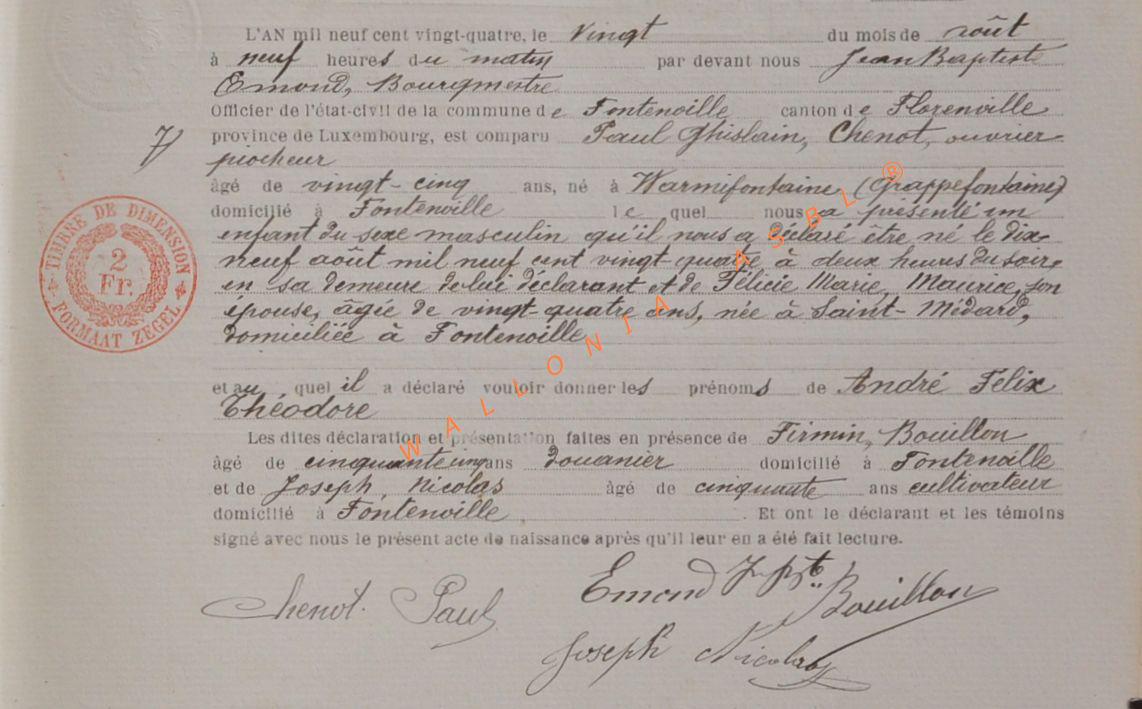 L'AN mil neuf cent vingt-quatre, le vingt du mois de août
à neuf heures du matin par devant nous Jean Baptiste
Emond, Bourgmestre
Officier de l'état-civil de la commune de Fontenoille canton de Florenville
7 province de Luxembourg, est comparu Paul Ghislain, Chenot, ouvrier
piocheur
âgé de vingt-cinq ans, né à Warmifontaine (Grappefontaine)
domicilié à Fontenoille lequel nous a présenté un
enfant du sexe masculin qu'il nous a déclaré être né le dix-
neuf août mil neuf cent vingt quatre à deux heures du soir,
en sa demeure de lui déclarant et de Félicie Marie, Maurice, son
épouse, âgée de vingt-quatre ans, née à Saint-Médard,
domiciliée à Fontenoille
et auquel il a déclaré vouloir donner les prénoms de André Félix
Théodore
Les dites déclaration et présentation faites en présence de Firmin, Bouillon
âgé de cinquante cinq ans douanier domicilié à Fontenoille
et de Joseph, Nicolas âgé de cinquante ans cultivateur
domicilié à Fontenoille. Et ont le déclarant et les témoins
signé avec nous le présent acte de naissance après qu'il leur en a été fait lecture.
Chenot Paul Emond J. Bte Bouillon
Joseph Nicolas
TIMBRE DE DIMENSION
2
Fr.
FORMAAT ZEGEL
WALLONIA ASBL ®